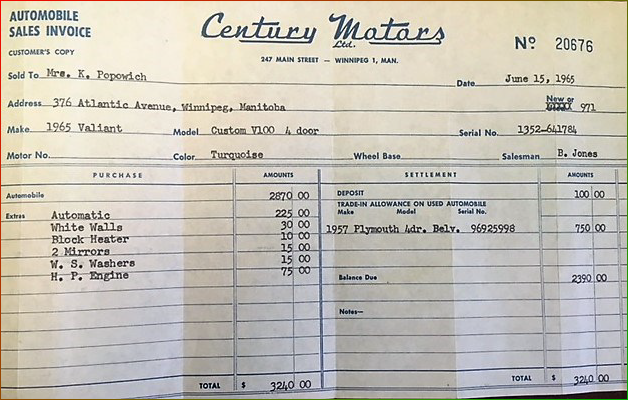 AUTOMOBILE
SALES INVOICE
CUSTOMER'S COPY
Century Motors
Ltd.
247 MAIN STREET — WINNIPEG 1, MAN.
Nº 20676
Sold To Mrs. K. Popowich
Date June 15, 1965
Address 376 Atlantic Avenue, Winnipeg, Manitoba
New or
971
Make 1965 Valiant Model Custom V100 4 door Serial No. 1352-641784
Motor No. Color Turquoise Wheel Base Salesman B. Jones
PURCHASE AMOUNTS SETTLEMENT AMOUNTS
Automobile 2870 00
DEPOSIT 100 00
TRADE-IN ALLOWANCE ON USED AUTOMOBILE
Make Model Serial No.
1957 Plymouth 4dr. Belv. 96925998 750 00
Extras Automatic 225 00
White Walls 30 00
Block Heater 10 00
2 Mirrors 15 00
W. S. Washers 15 00
H. P. Engine 75 00
Balance Due 2390 00
Notes—
TOTAL $ 3240 00
TOTAL $ 3240 00